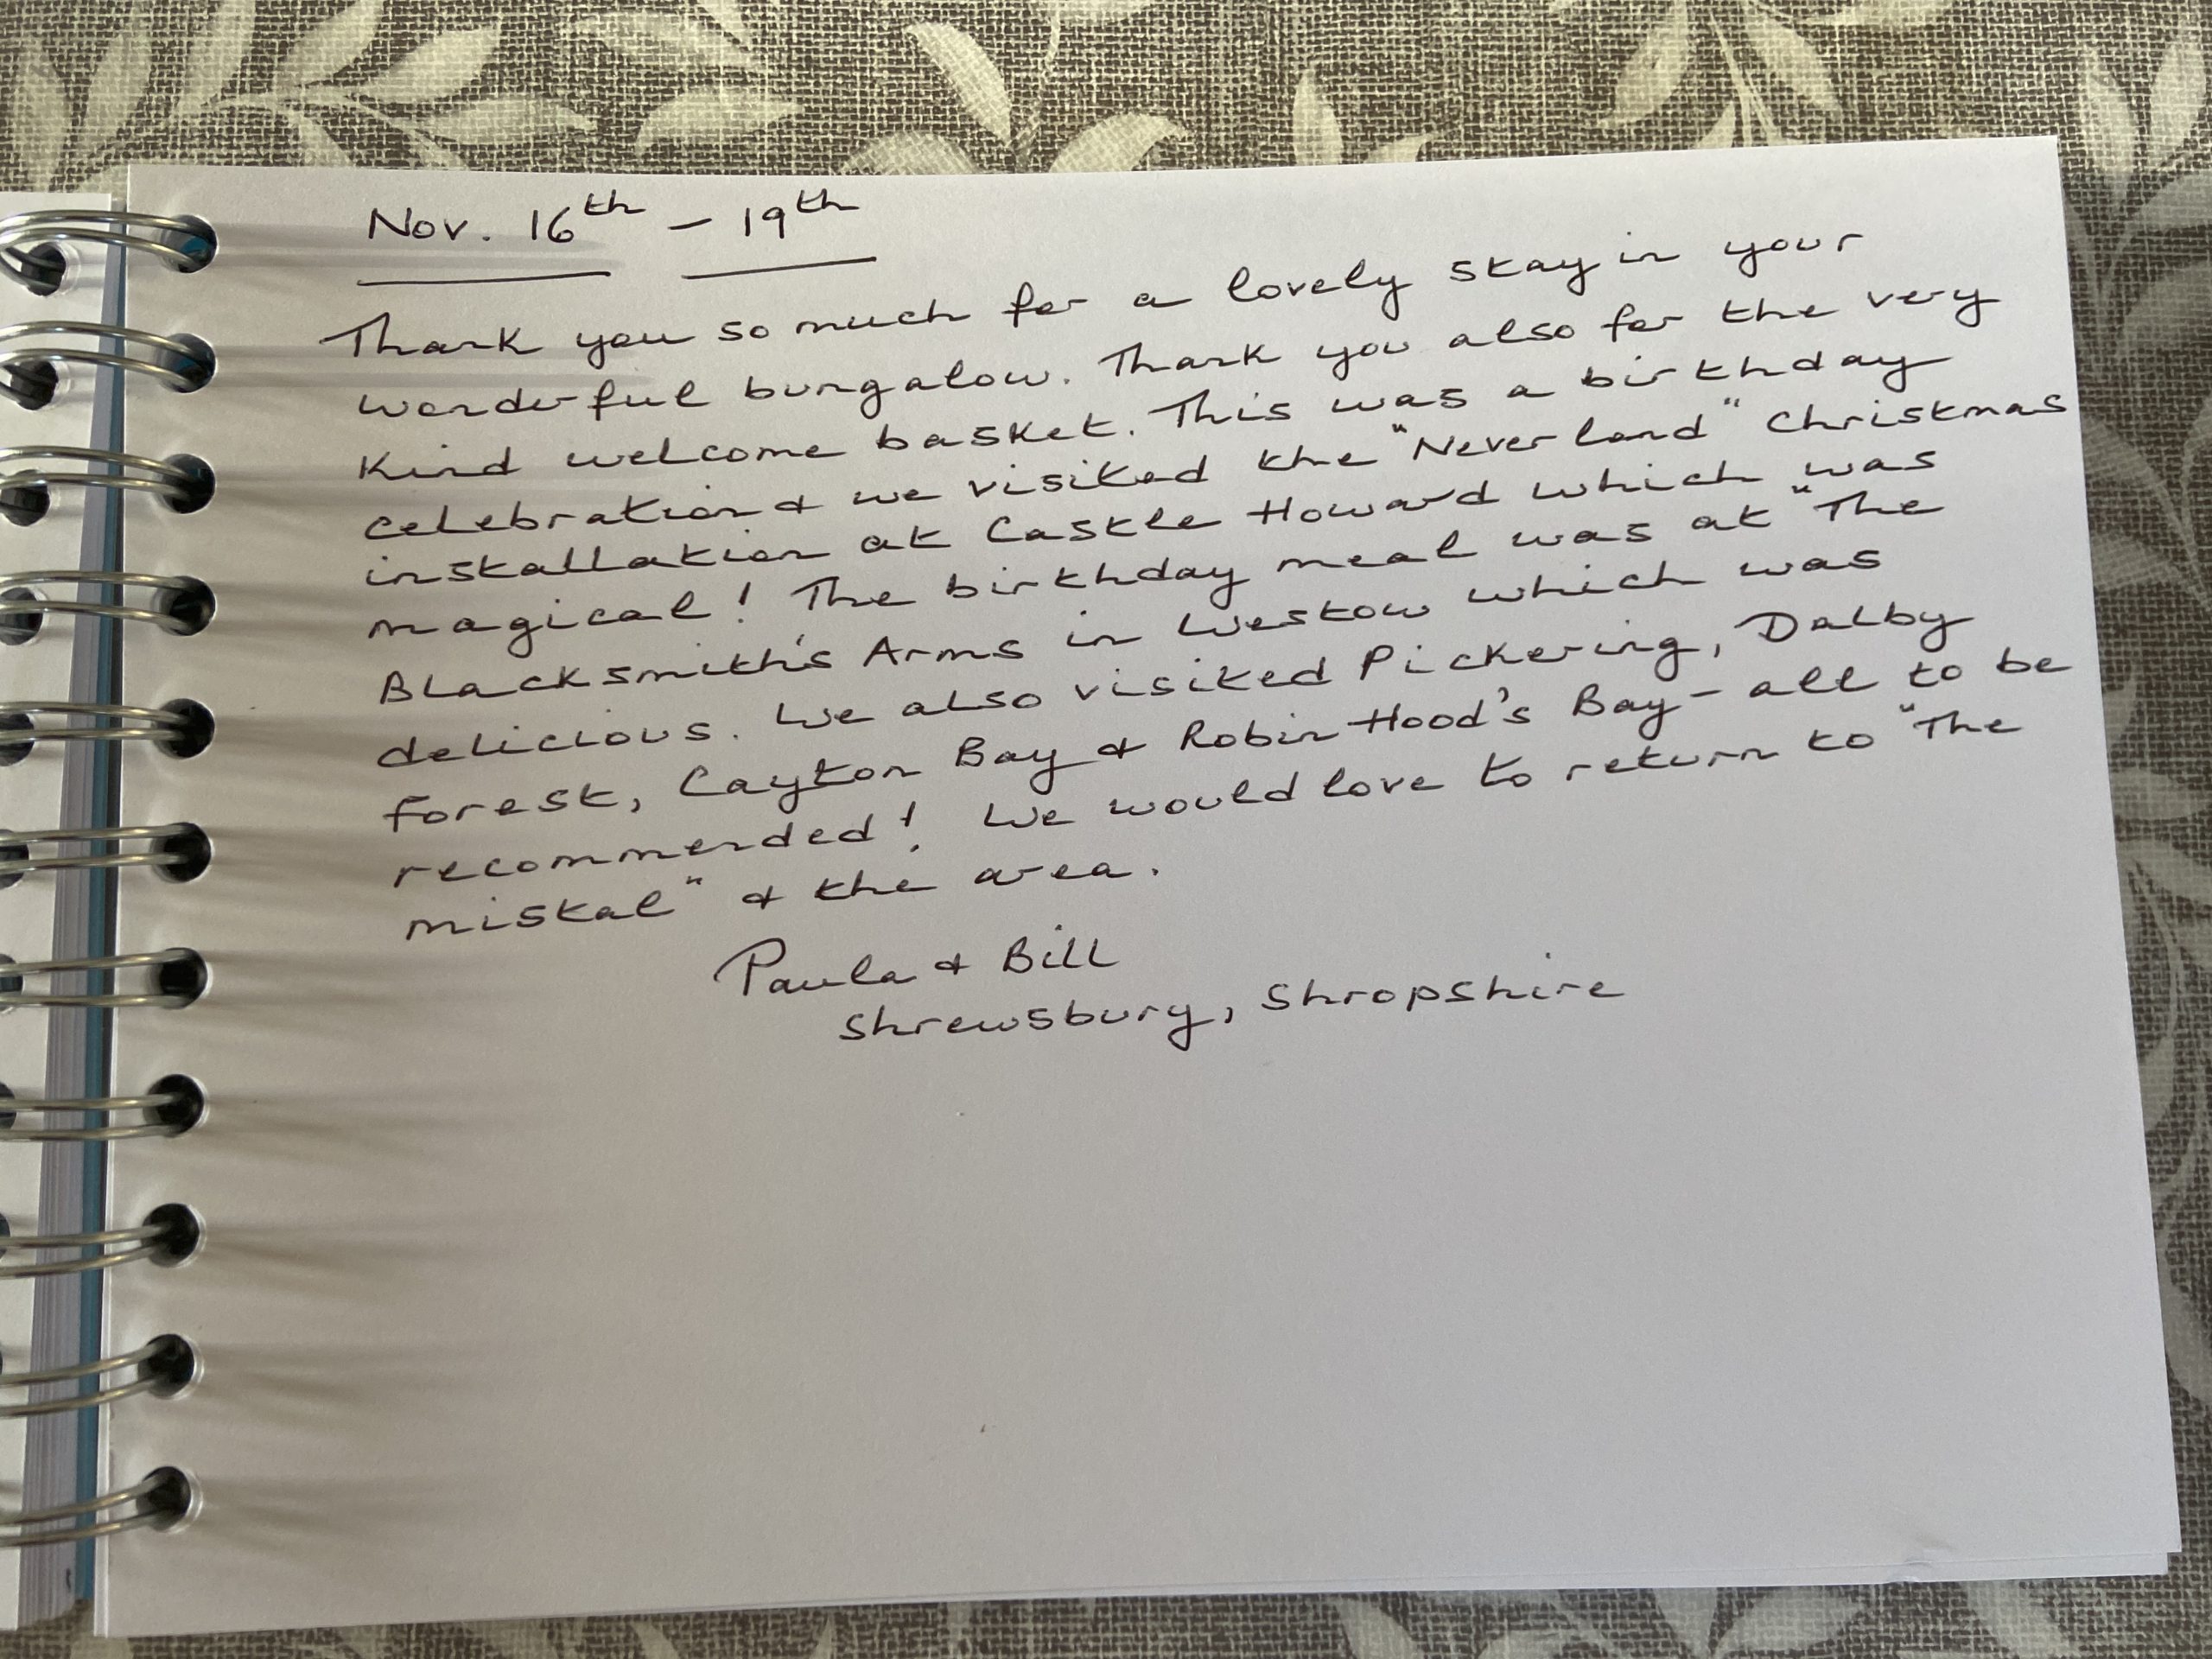 Nov. 16th - 19th
Thank you so much for a lovely stay in your
wonderful bungalow. Thank you also for the very
kind welcome basket. This was a birthday
celebration & we visited the "Neverland" Christmas
installation at Castle Howard which was
magical! The birthday meal was at "The
Blacksmith's Arms in Westow which was
delicious. We also visited Pickering, Dalby
Forest, Cayton Bay & Robin Hood's Bay - all to be
recommended! We would love to return to "The
mistal" & the area.
Paula & Bill
Shrewsbury, Shropshire